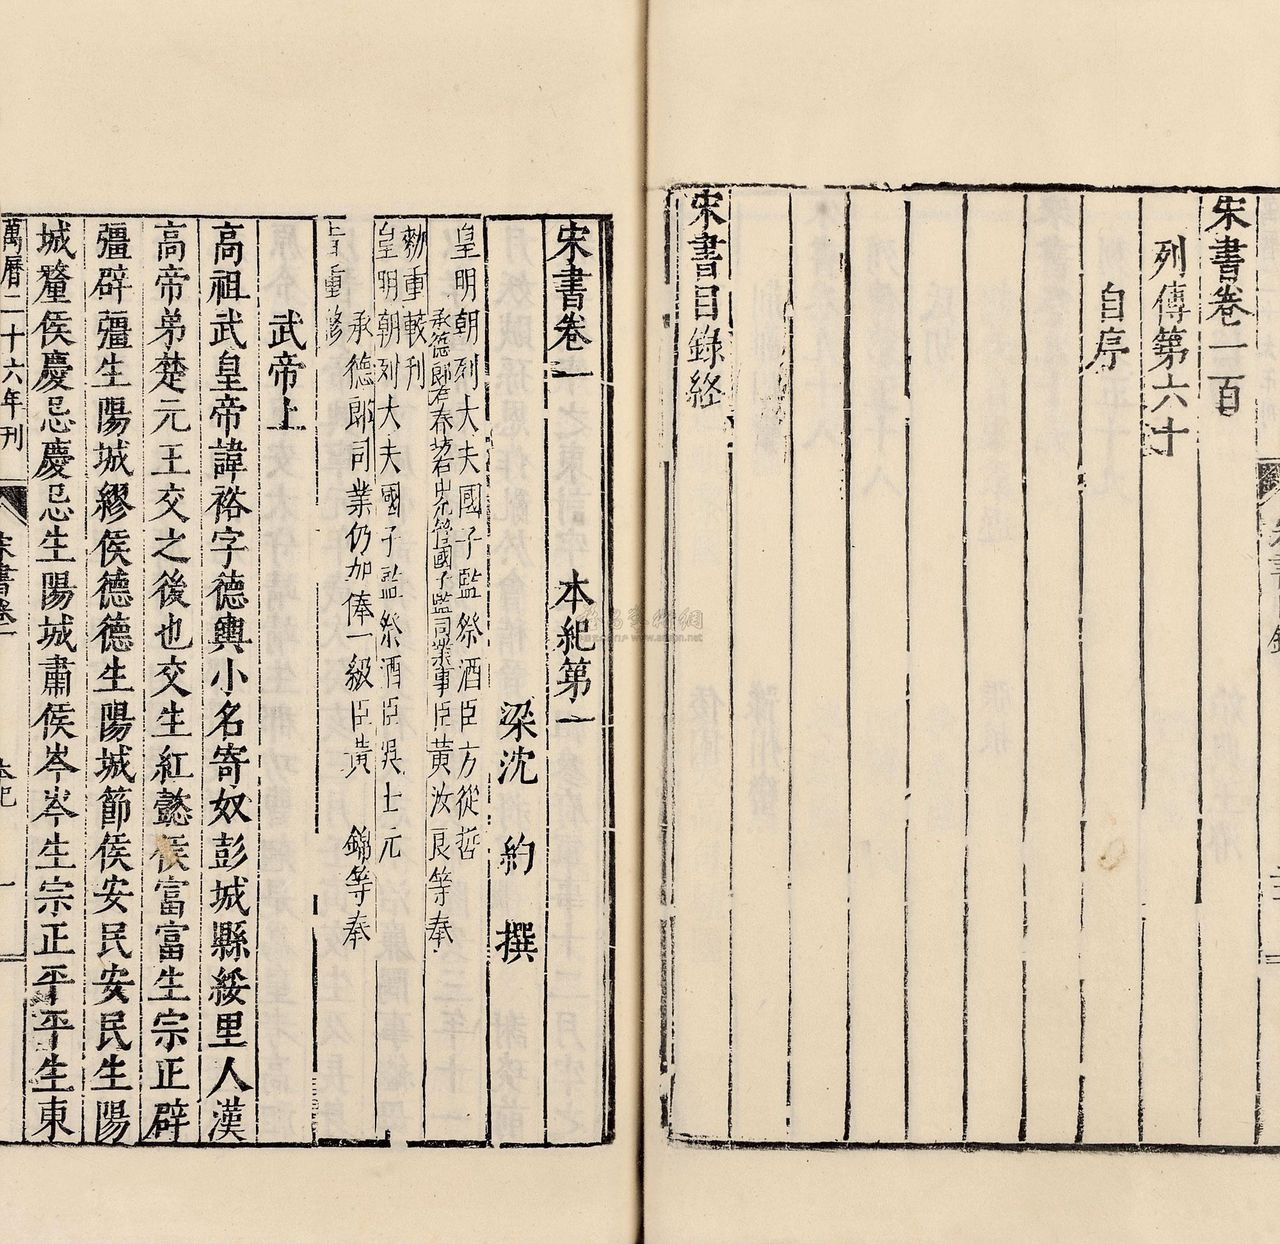 宋書卷一百
列傳第六十
自序
宋書目錄終
宋書卷一 本紀第一
梁沈 約 撰
皇明朝列大夫國子監祭酒臣方從哲
承德郎右春坊右中允管國子監司業事臣黃汝良等奉
勅重較刊
皇明朝列大夫國子監祭酒臣吳士元
承德郎司業仍加俸一級臣黃 錦等奉
旨重修
武帝上
高祖武皇帝諱裕字德輿小名寄奴彭城縣綏里人漢
高帝弟楚元王交之後也交生紅懿侯富富生宗正辟
彊辟彊生陽城繆侯德德生陽城節侯安民安民生陽
城釐侯慶忌慶忌生陽城肅侯岑岑生宗正平平生東
萬曆二十六年刊
宋書卷一 本紀 一